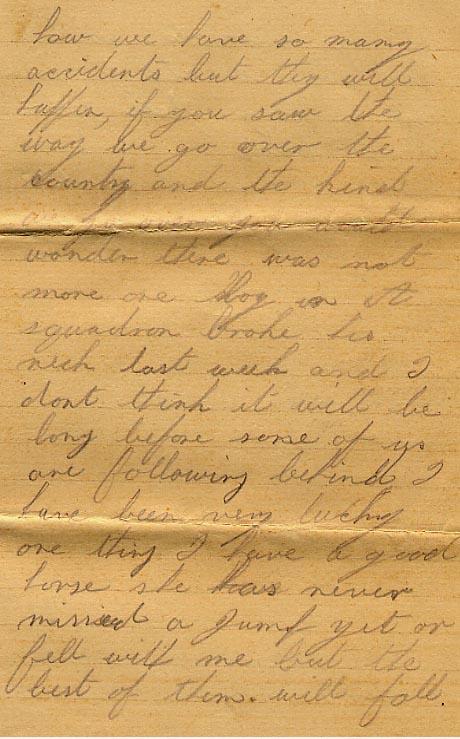 how we have so many
accidents but they will
happen, if you saw the
way we go over the
country and the kind
we go over you would
wonder there was not
more one Boy in A
squadron broke his
neck last week and I
dont think it will be
long before some of us
are following behind I
have been very lucky
one thing I have a good
horse she has never
missed a Jump yet or
fell with me but the
best of them. will fall